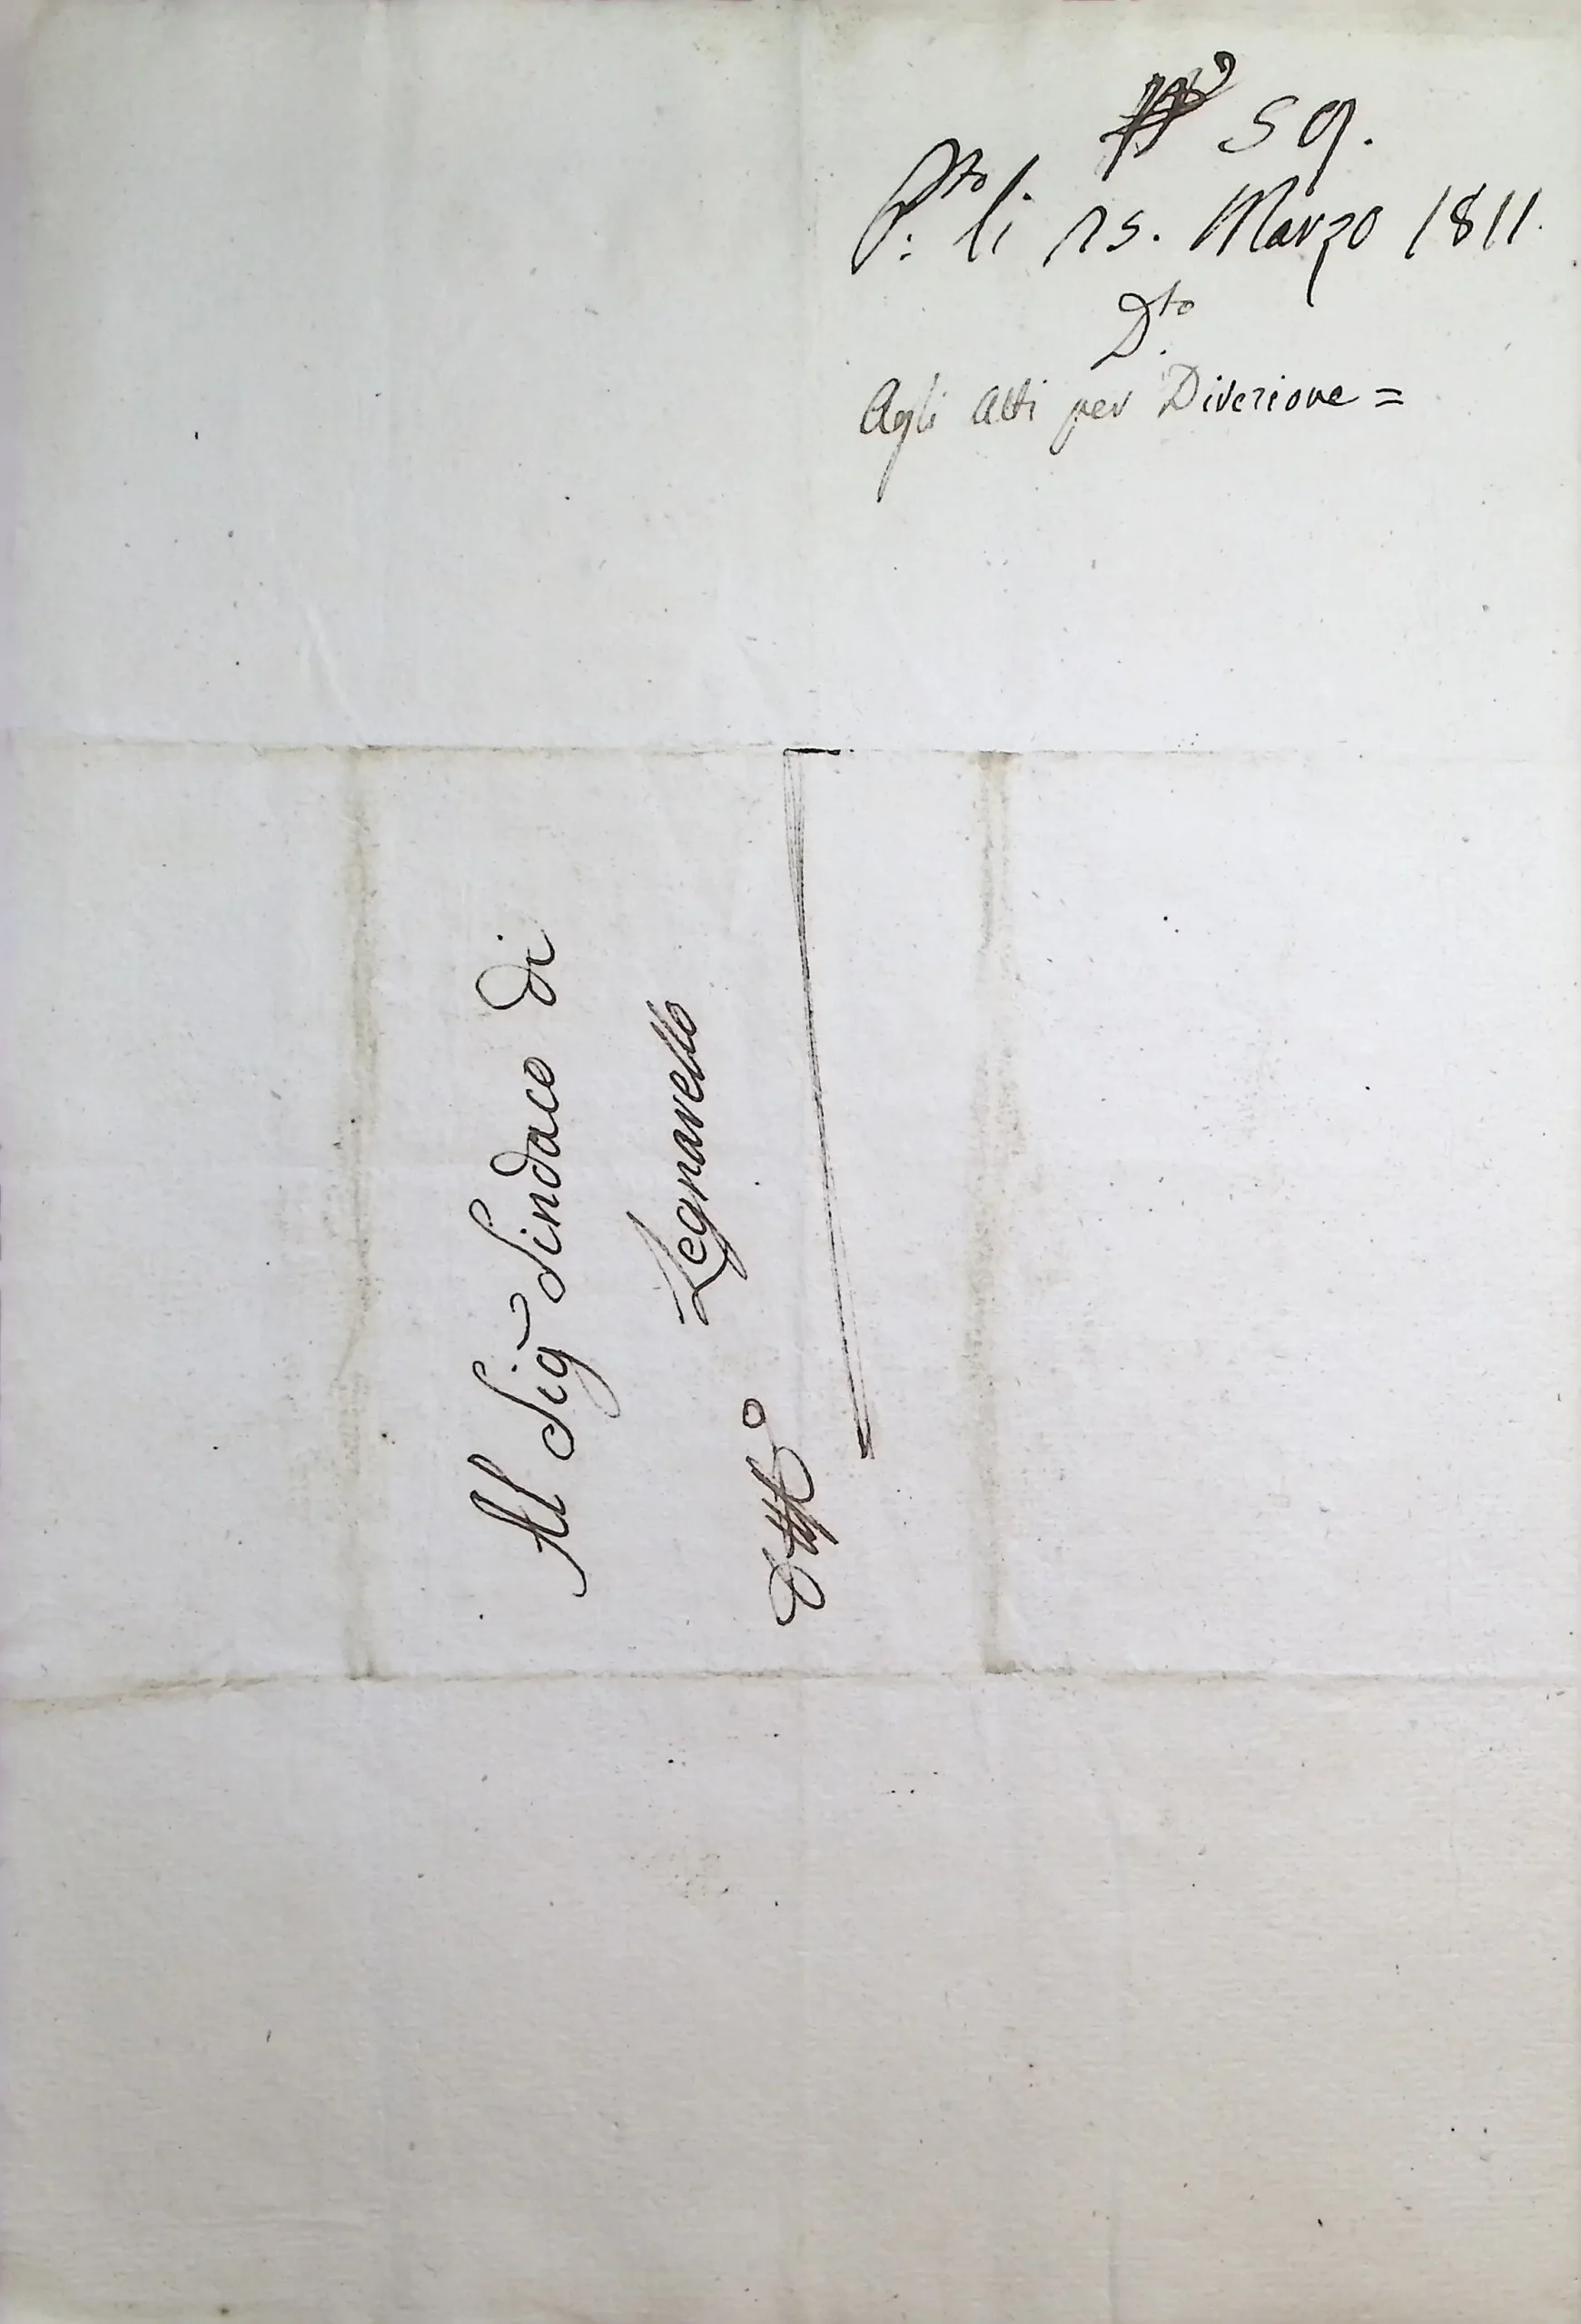 N° 59.
P.to li 25. Marzo 1811.
D.to
Agli Atti per Direzione =
Al Sig Sindaco di
Legnarello